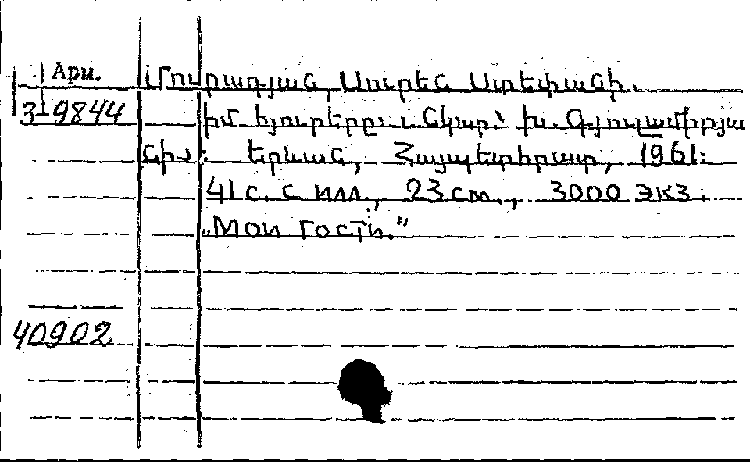 Арм.
Մուրադյան Սուրեն Ստեփանի.
3-9844
Իմ հյուրերը: Նկար՝ խ. Գյուլամիրյա
նի: Երևան, Հայպետհրատ, 1961:
41 с. с илл., 23 см., 3000 экз.
„Мои гости."
40902